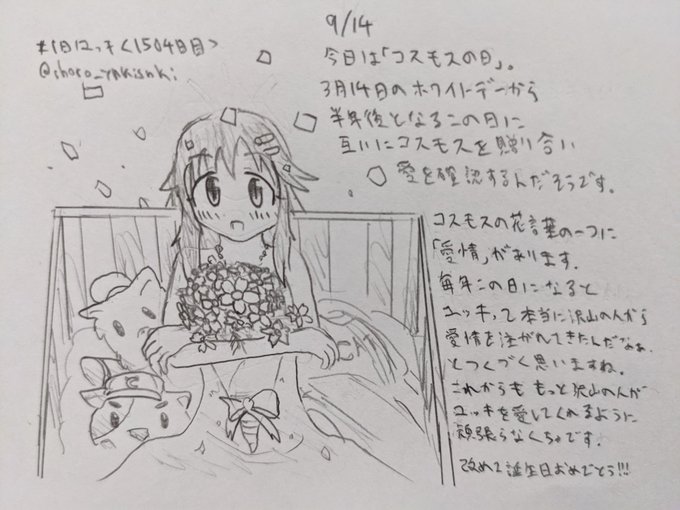 #1日1ユッキ<1504日目>
@shoro_yukisuki
9/14
今日は「コスモスの日」。
3月14日のホワイトデーから
半年後となるこの日に
互いにコスモスを贈り合い
愛を確認するんだそうです。
コスモスの花言葉の一つに
「愛情」があります。
毎年この日になると
ユッキって本当に沢山の人から
愛情を注がれてきたんだなぁ、
とつくづく思いますね。
これからももっと沢山の人が
ユッキを愛してくれるように
頑張らなくちゃです。
改めて誕生日おめでとう!!!